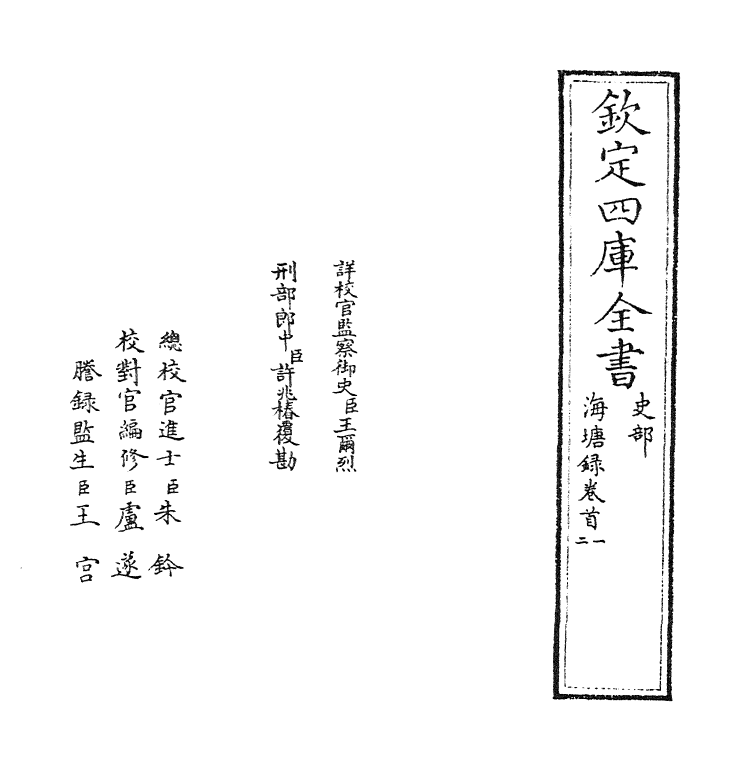 欽定四庫全書
史部
海塘録卷首一二
詳校官監察御史臣王爾烈
刑部郎中臣許兆椿覆勘
總校官進士臣朱鈐
校對官編修臣盧遂
謄録監生臣王宫